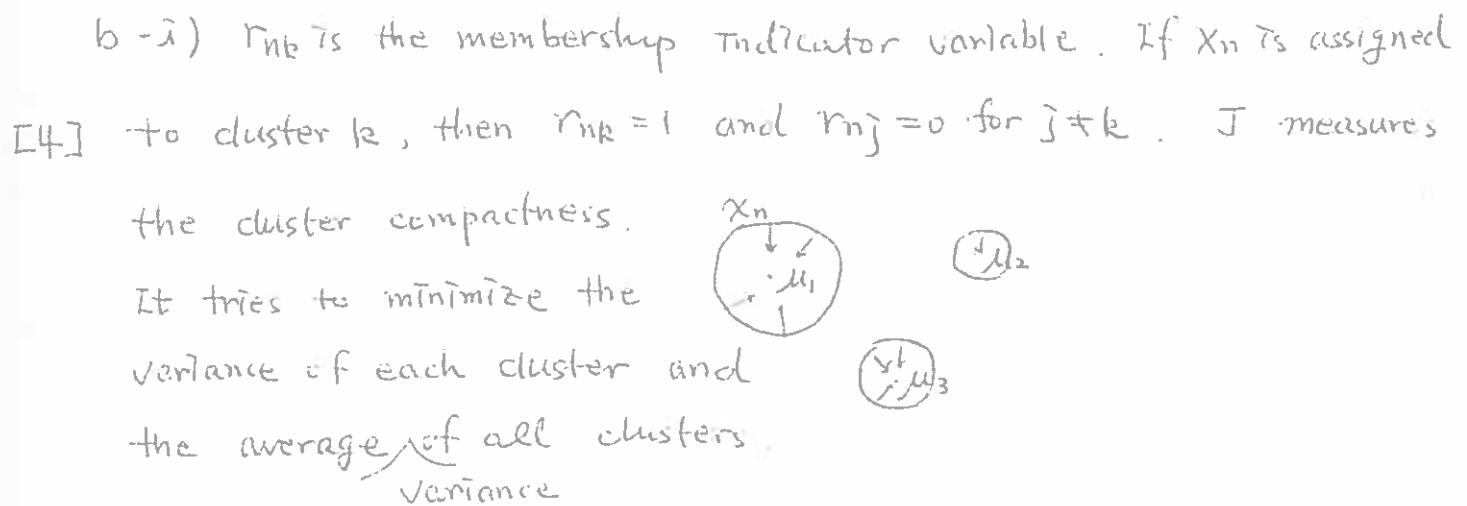 b-i) rnk is the membership indicator variable. If xn is assigned
[4] to cluster k, then rnk = 1 and rnj = 0 for j ≠ k. J measures
the cluster compactness.
xn
μ1
μ2
It tries to minimize the
variance of each cluster and
μ3
the average variance of all clusters